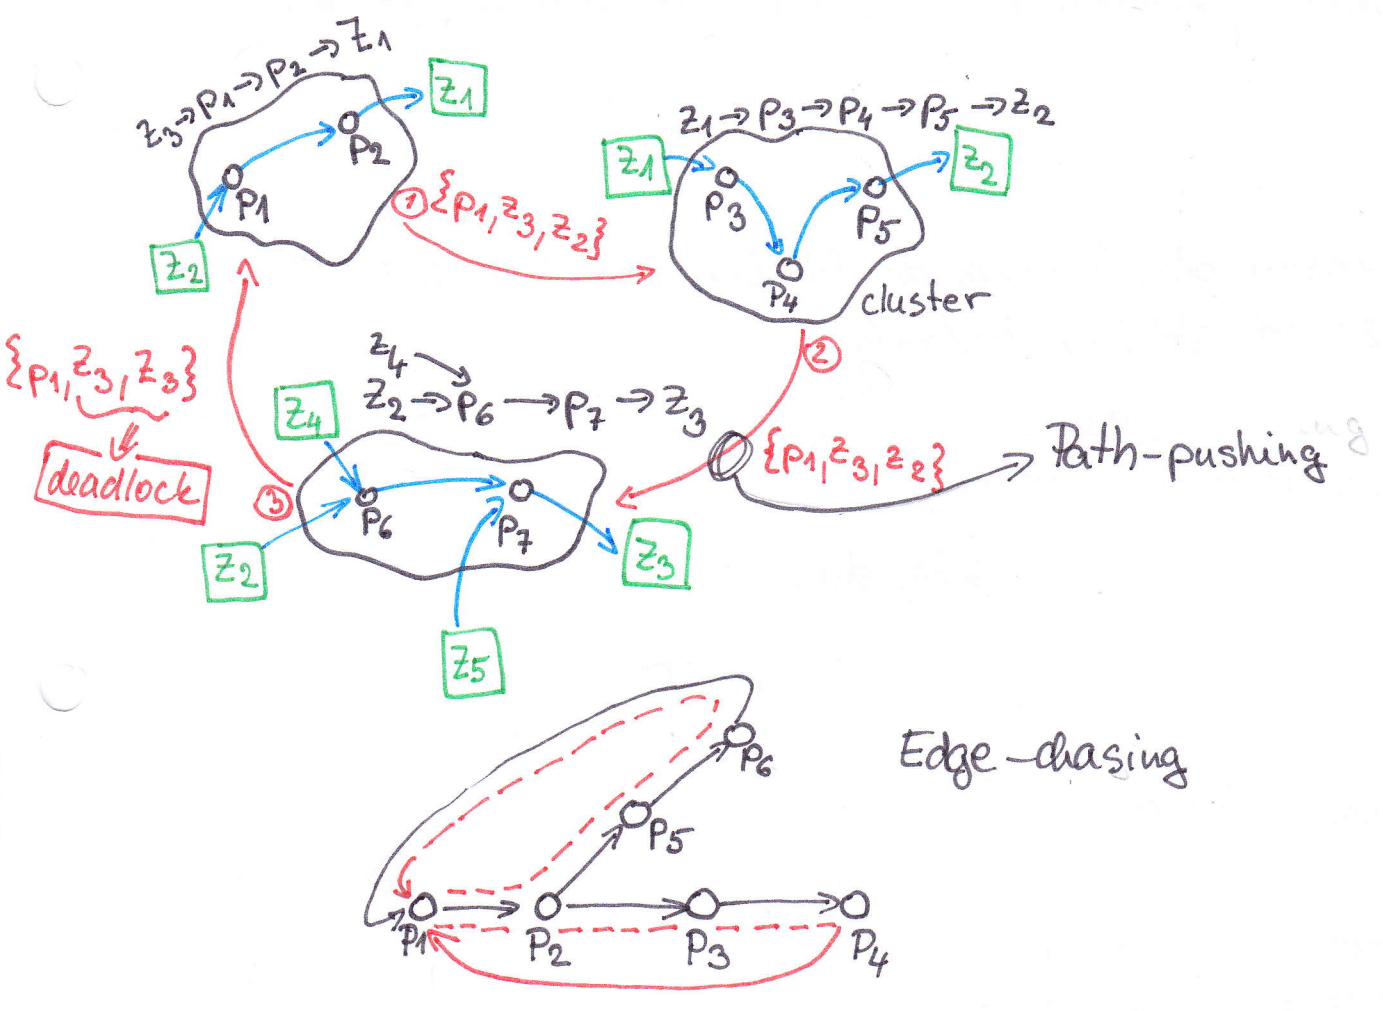 z3→p1→p2→Z1
Z1
p2
p1
Z2
① {p1,z3,z2}
z1→p3→p4→p5→z2
Z1
z2
p3
p5
p4
cluster
②
{p1,z3,z3}
deadlock
③
z4
z2→p6→p7→z3
Z4
p6
p7
Z2
Z3
Z5
{p1,z3,z2}
Path-pushing
Edge-chasing
p6
p5
p1
p2
p3
p4